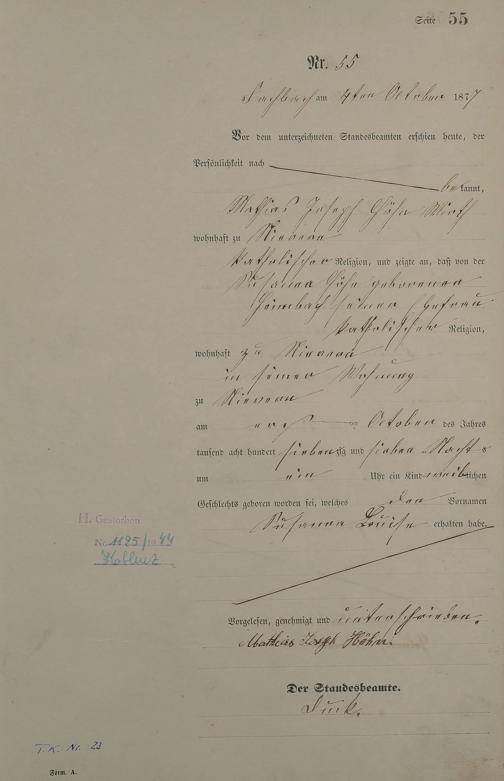 Seite 55
Nr. 55
Fachbach am 4ten October 1877
Vor dem unterzeichneten Standesbeamten erschien heute, der
Persönlichkeit nach
bekannt,
Mathias Joseph Höhn Wirth
wohnhaft zu Nievern
katholischer Religion, und zeigte an, daß von der
Susanna Höhn geborenen
Heimbach seiner Ehefrau
katholischer Religion,
wohnhaft zu Nievern
in seiner Wohnung
zu Nievern
am October des Jahres
tausend acht hundert siebenzig und sieben Nachts
um ein Uhr ein Kind weiblichen
Geschlechts geboren worden sei, welches den Vornamen
Susanna Louise erhalten habe.
Vorgelesen, genehmigt und unterschrieben.
Mathias Joseph Höhn
Der Standesbeamte.
H. Gestorben
No 1195/1944
Koblenz
T.K. Nr. 23
Form. A.